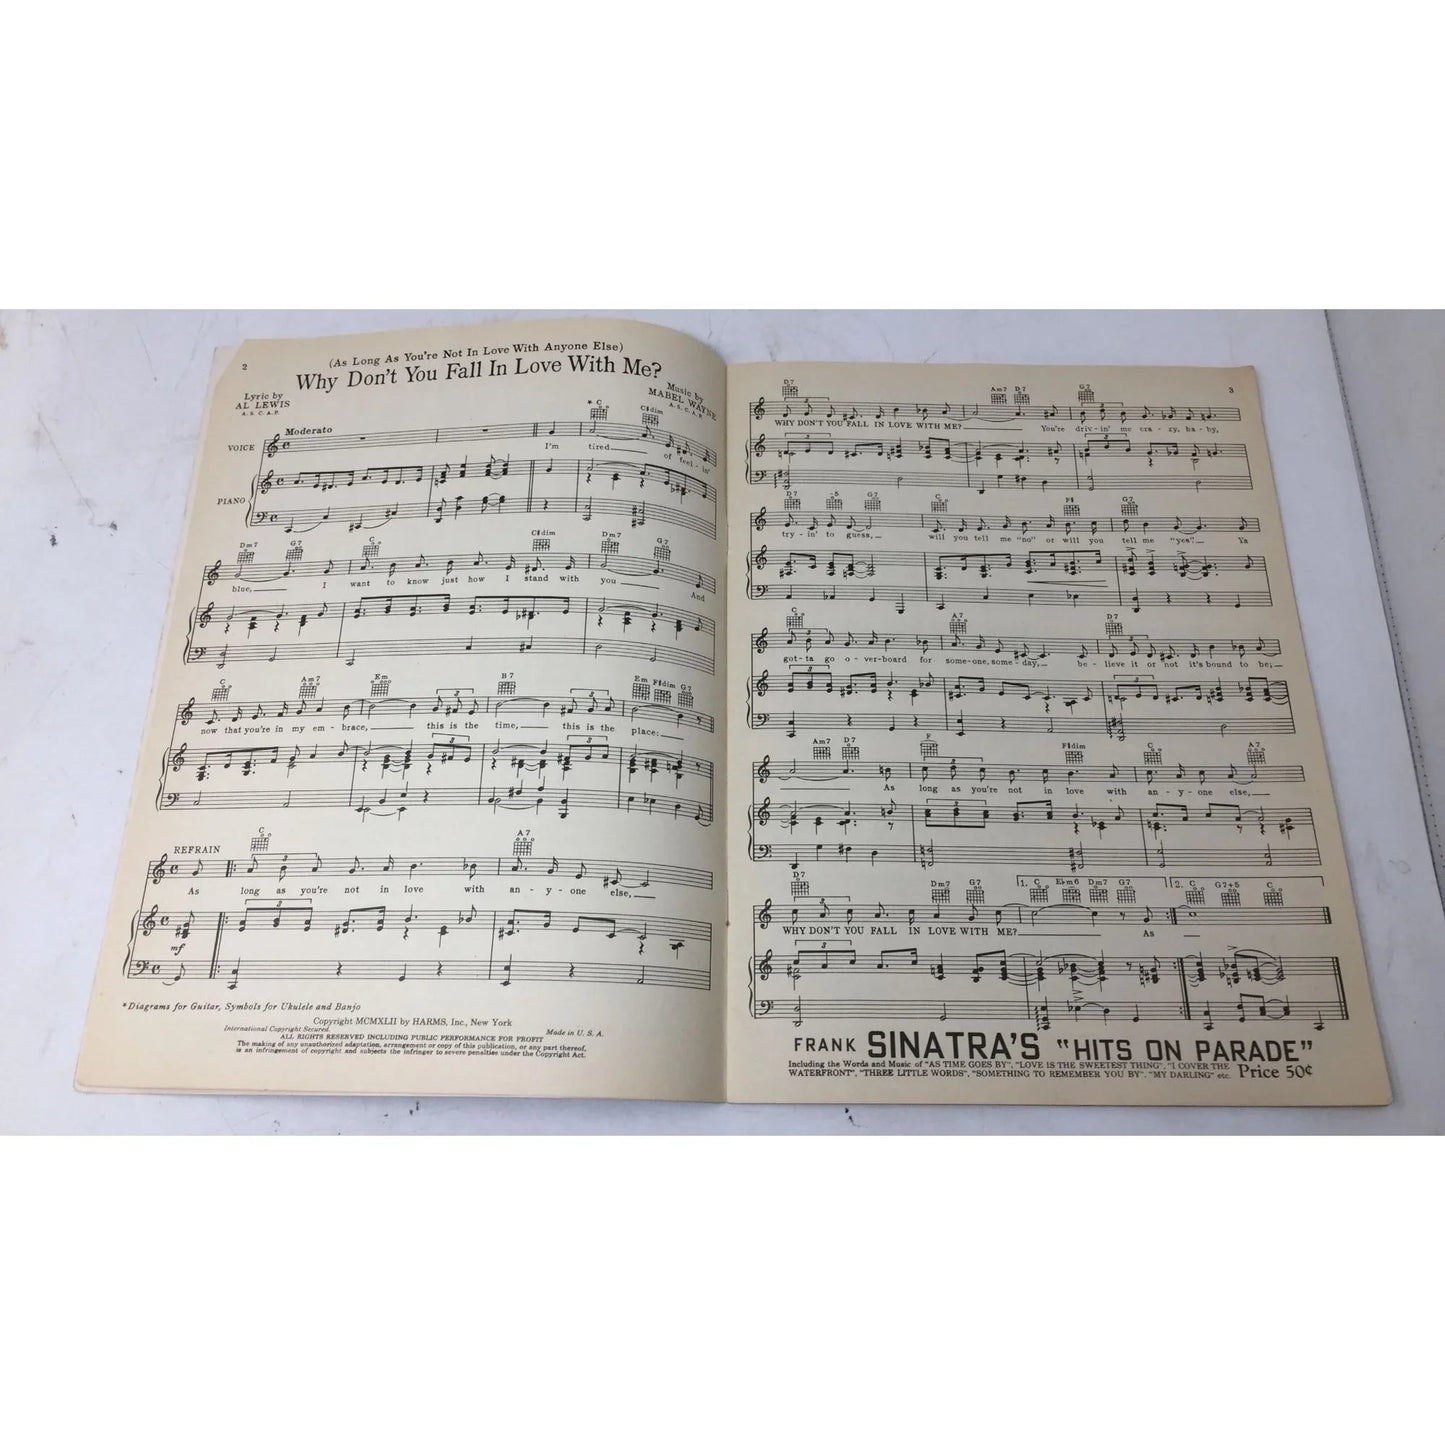 2
(As Long As You're Not In Love With Anyone Else)
Why Don't You Fall In Love With Me?
Lyric by
AL LEWIS
A. S. C. A. P.
Music by
MABEL WAYNE
A. S. C. A. P.
Moderato
* C C♯dim
VOICE
I'm tired of feel-in'
PIANO
Dm7 G7 C C♯dim Dm7 G7
blue, I want to know just how I stand with you And
C Am7 Em B7 Em F♯dim G7
now that you're in my em-brace, this is the time, this is the place:
REFRAIN
C A7
As long as you're not in love with an-y-one else,
mf
*Diagrams for Guitar, Symbols for Ukulele and Banjo
Copyright MCMXLII by HARMS, Inc., New York
International Copyright Secured. Made in U. S. A.
ALL RIGHTS RESERVED INCLUDING PUBLIC PERFORMANCE FOR PROFIT
The making of any unauthorized adaptation, arrangement or copy of this publication, or any part thereof,
is an infringement of copyright and subjects the infringer to severe penalties under the Copyright Act.
3
D7 Am7 D7 G7
WHY DON'T YOU FALL IN LOVE WITH ME? You're driv-in' me cra-zy, ba-by,
D7 -5 G7 C F♯ G7
try-in' to guess, will you tell me "no" or will you tell me "yes". Ya
C A7 D7
got-ta go o-ver-board for some-one, some-day, be-lieve it or not it's bound to be;
Am7 D7 F F♯dim C A7
As long as you're not in love with an-y-one else,
D7 Dm7 G7 1. C E♭m6 Dm7 G7 2. C G7+5 C
WHY DON'T YOU FALL IN LOVE WITH ME? As
FRANK SINATRA'S "HITS ON PARADE"
Including the Words and Music of "AS TIME GOES BY", "LOVE IS THE SWEETEST THING", "I COVER THE
WATERFRONT", "THREE LITTLE WORDS", "SOMETHING TO REMEMBER YOU BY", "MY DARLING" etc. Price 50¢